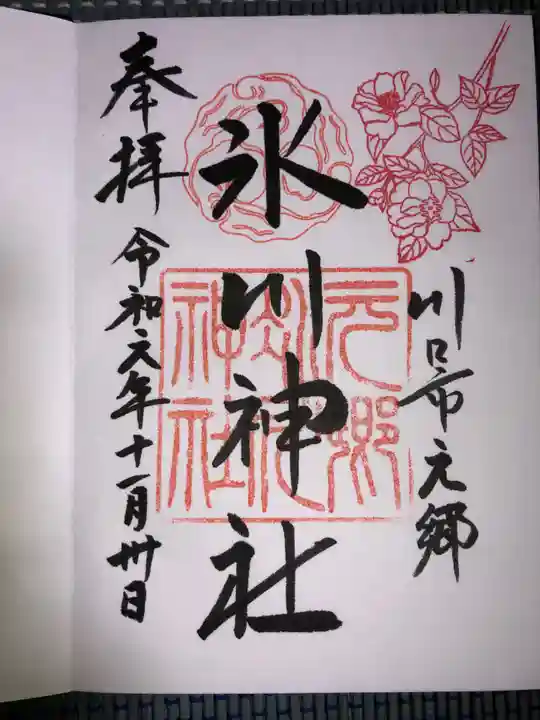 川口市元郷
氷川神社
元郷
氷川
神社
奉拝
令和元年十一月卅日